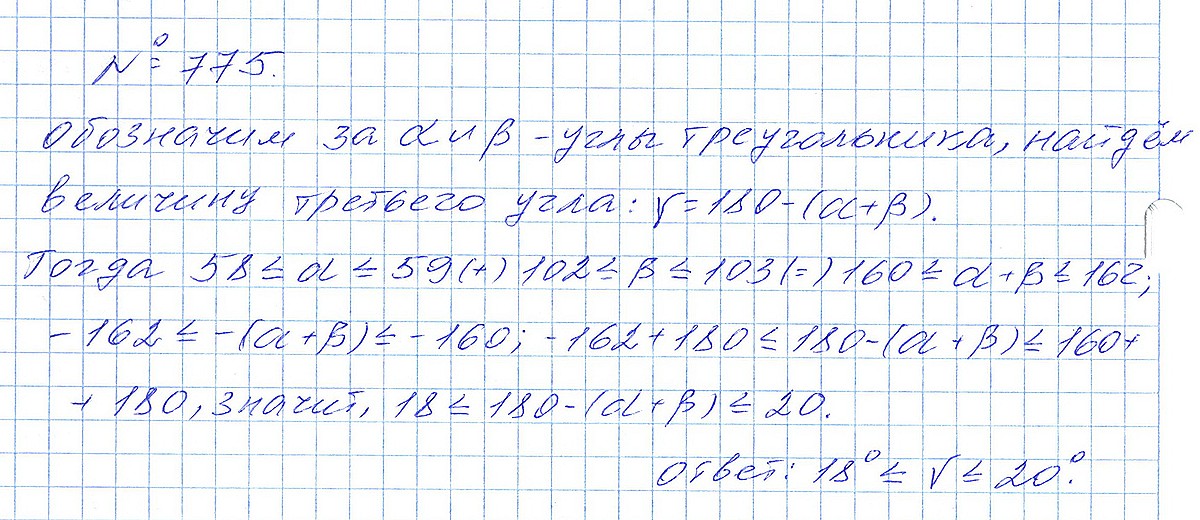 № 775.
Обозначим за α и β - углы треугольника, найдём
величину третьего угла: γ = 180 - (α + β).
Тогда 58 ≤ α ≤ 59 (+) 102 ≤ β ≤ 103 (=) 160 ≤ α + β ≤ 162;
- 162 ≤ - (α + β) ≤ - 160; - 162 + 180 ≤ 180 - (α + β) ≤ 160 +
+ 180, значит, 18 ≤ 180 - (α + β) ≤ 20.
Ответ: 18° ≤ γ ≤ 20°.